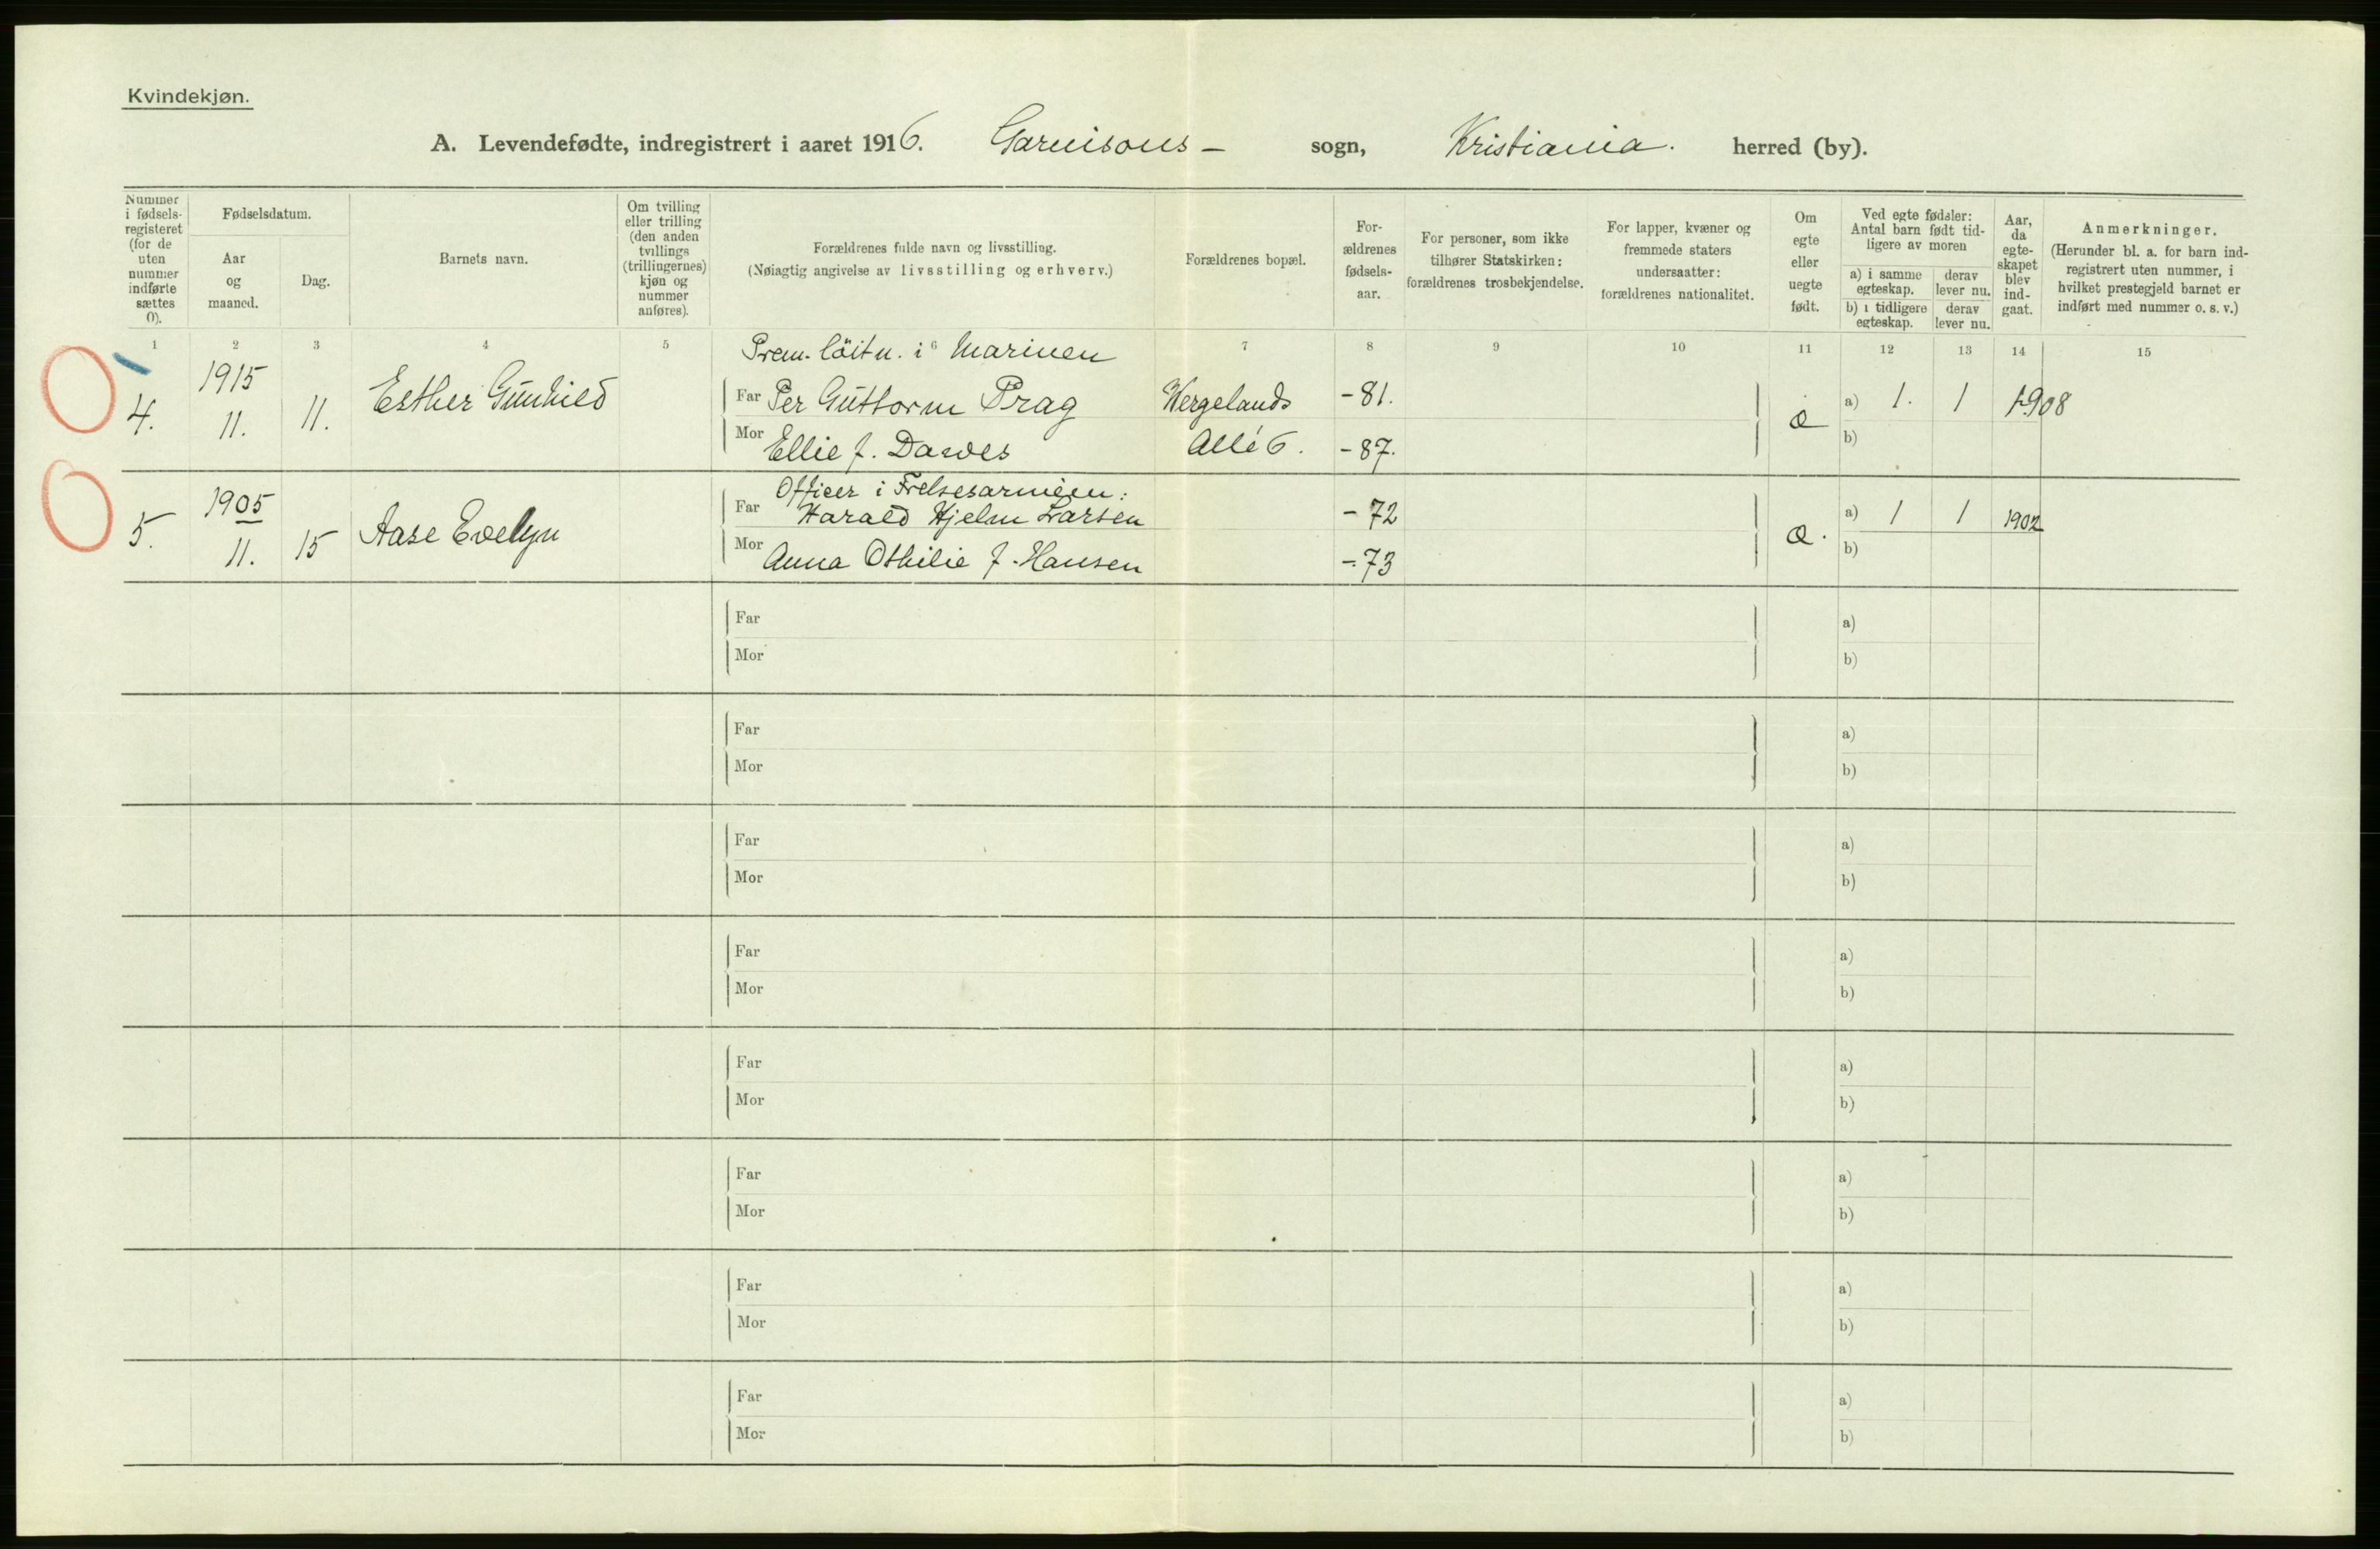 Kvindekjøn.
A. Levendefødte, indregistrert i aaret 1916. Garnisons- sogn, Kristiania. herred (by).
Nummer i fødsels-registeret (for de uten nummer indførte sættes 0).
Fødselsdatum.
Aar og maaned.
Dag.
Barnets navn.
Om tvilling eller trilling (den anden tvillings (trillingernes) kjøn og nummer anføres).
Forældrenes fulde navn og livsstilling.
(Nøiagtig angivelse av livsstilling og erhverv.)
Forældrenes bopæl.
For-ældrenes fødsels-aar.
For personer, som ikke tilhører Statskirken: forældrenes trosbekjendelse.
For lapper, kvæner og fremmede staters undersaatter: forældrenes nationalitet.
Om egte eller uegte født.
Ved egte fødsler: Antal barn født tid-ligere av moren
a) i samme egteskap. derav lever nu.
b) i tidligere egteskap. derav lever nu.
Aar, da egte-skapet blev ind-gaat.
Anmerkninger.
(Herunder bl. a. for barn ind-registrert uten nummer, i hvilket prestegjeld barnet er indført med nummer o. s. v.)
1 2 3 4 5 6 7 8 9 10 11 12 13 14 15
Prem. löitn. i Marinen
4. 1915 11. 11. Esther Gunhild Far Per Guttorm Prag Wergelands -81. æ a) 1. 1 1908
Mor Ellie f. Dawes Allé 6. -87. b)
Officer i Frelsesarmeen:
5. 1905 11. 15 Aase Evelyn Far Harald Hjelm Larsen -72 æ. a) 1 1 1902
Mor Anna Othilie f. Hansen -73 b)
Far a)
Mor b)
Far a)
Mor b)
Far a)
Mor b)
Far a)
Mor b)
Far a)
Mor b)
Far a)
Mor b)
Far a)
Mor b)
Far a)
Mor b)